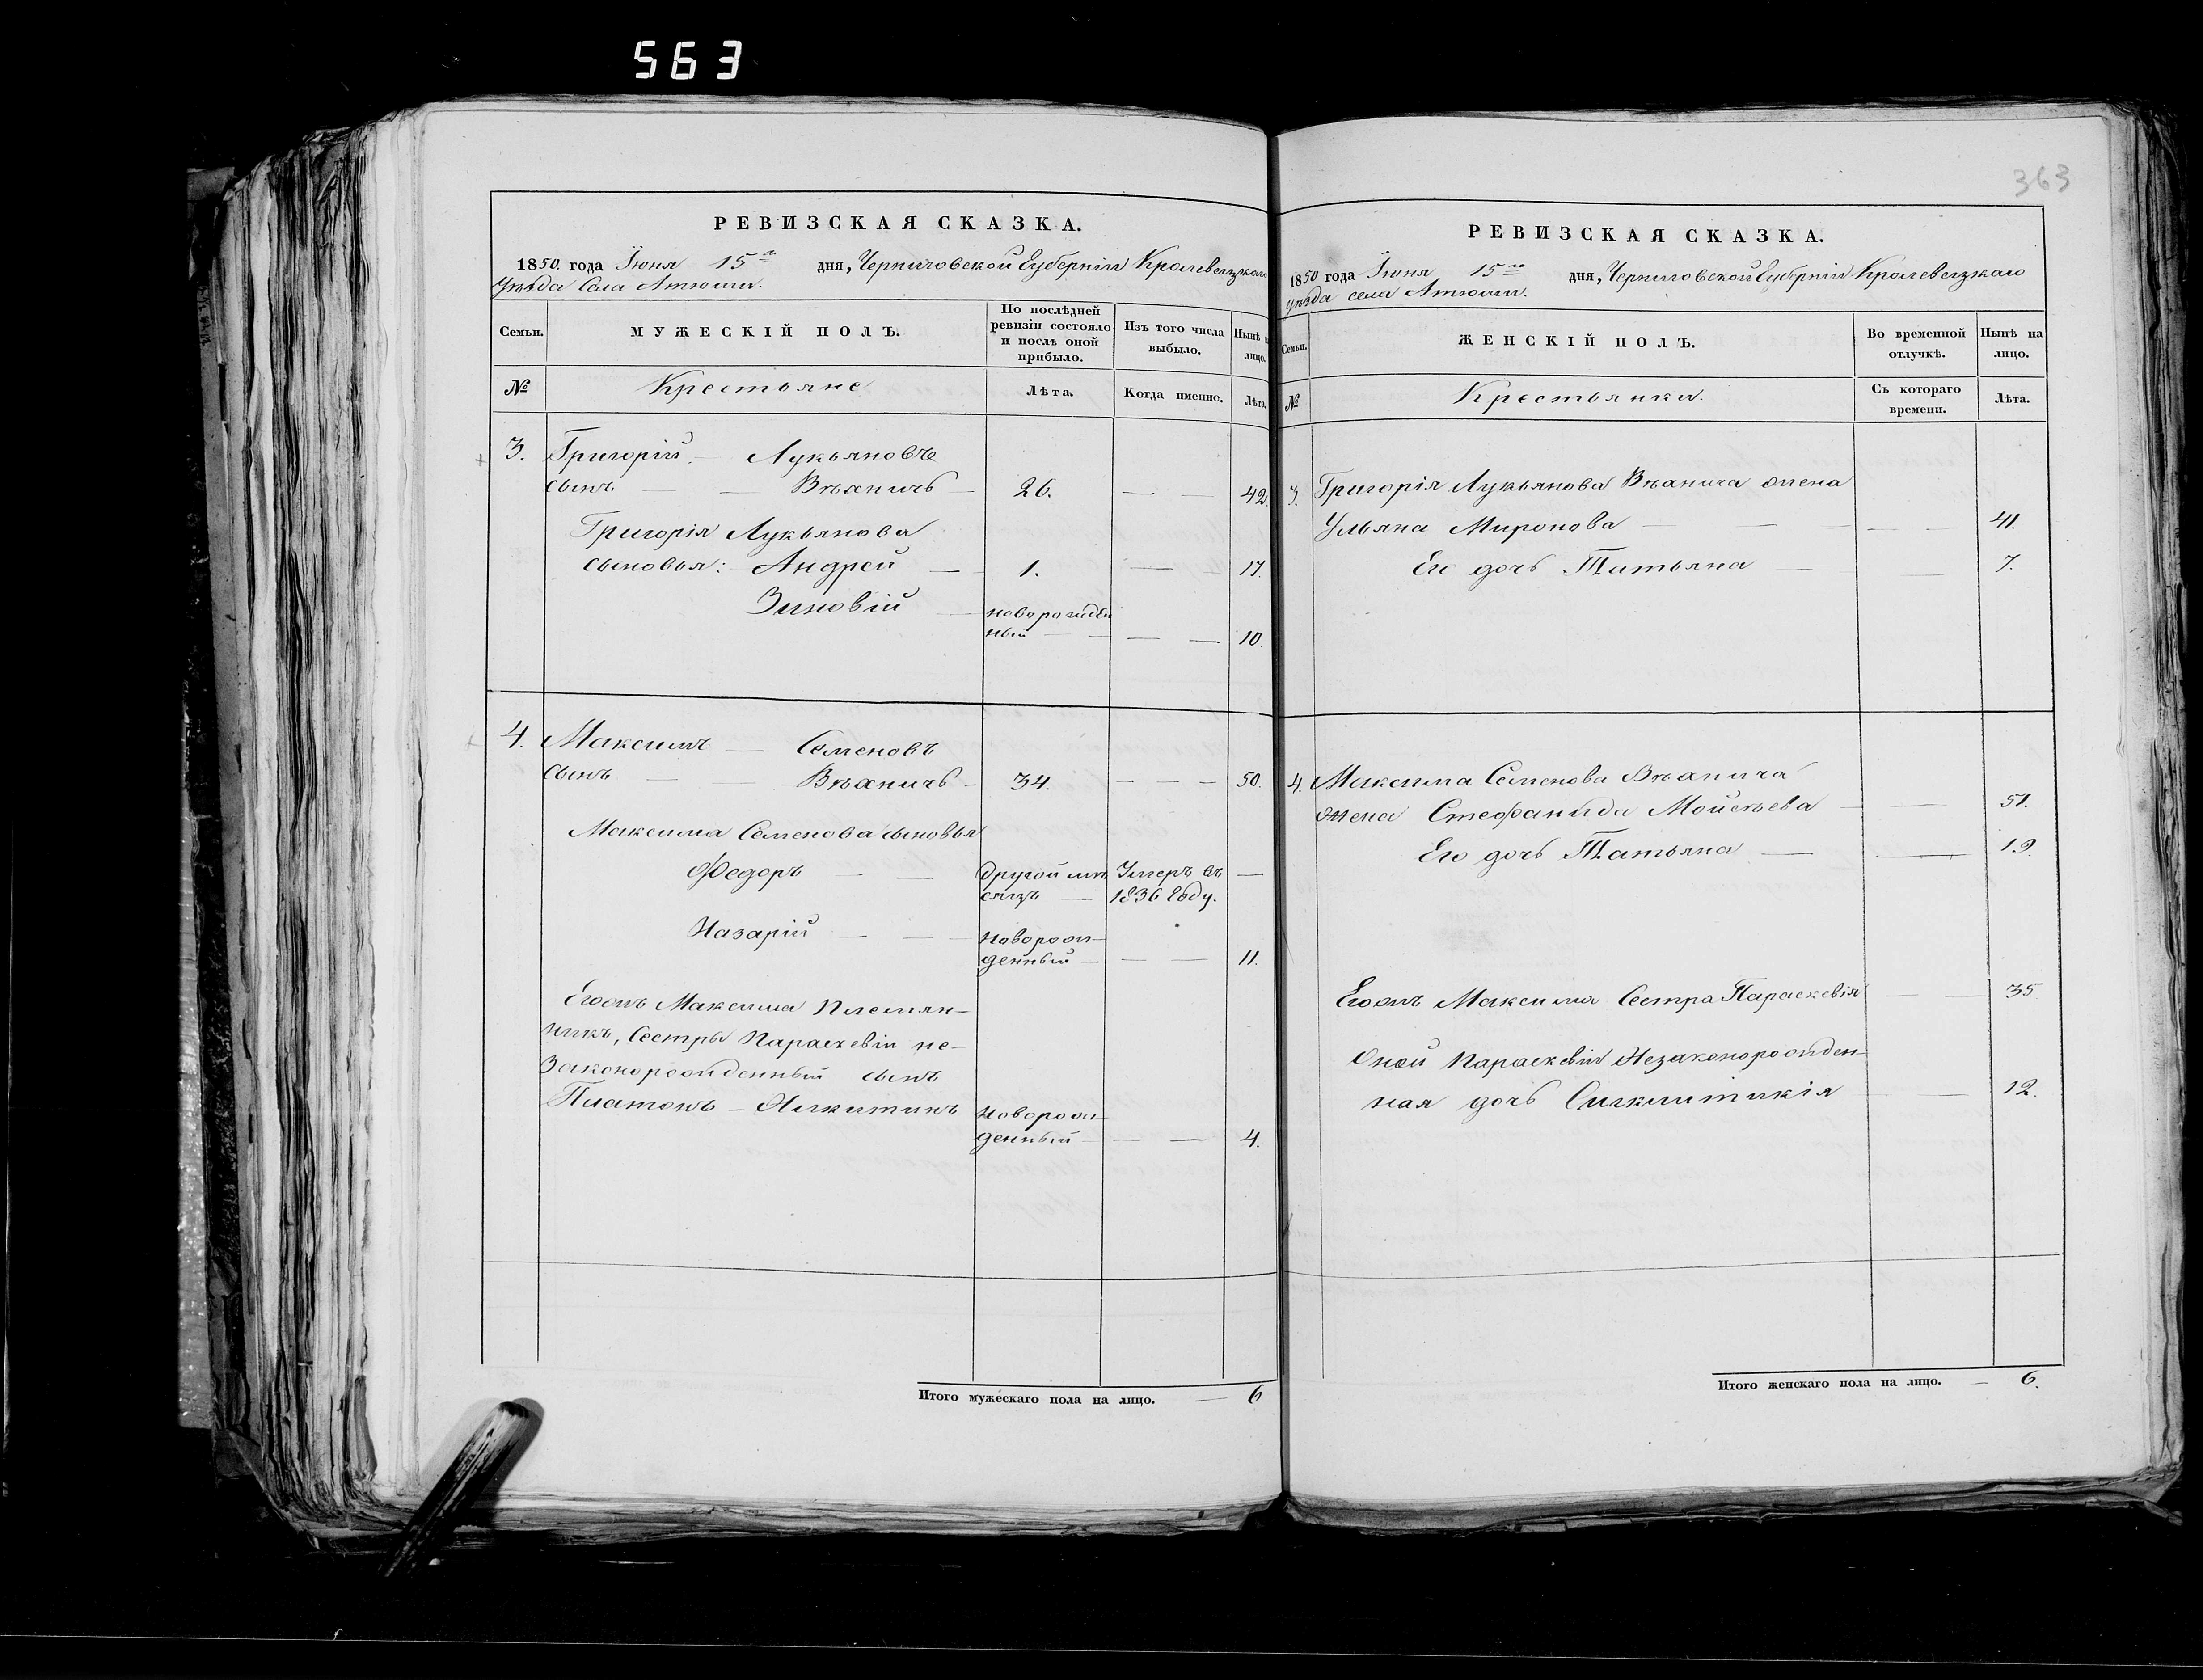 563
363
РЕВИЗСКАЯ СКАЗКА.
1850. года Июня 15го дня, Черниговской Губерніи Кролевецкаго
Уѣзда Села Атюши.
Семьи. МУЖЕСКІЙ ПОЛЪ. По послѣдней ревизіи состояло и послѣ оной прибыло. Изъ того числа выбыло. Нынѣ на лицо.
№ Крестьяне Лѣта. Когда именно. Лѣта.
3. Григорій — Лукьяновъ
сынъ — — 26. — — 42.
Григорія Лукьянова
сыновья: Андрей — 1. — 17.
Зиновій — новорожден
ный — — — 10.
4. Максимъ — Семеновъ
сынъ — — 34. — — — 50.
Максима Семенова сыновья
Федоръ — — другой мѣ Умеръ въ —
сяцъ — 1836 году.
Назарій — — новорож-
денный — — — 11.
Егожъ Максима Племян-
никъ, Сестры Параскевіи не-
законорожденный сынъ
Платонъ — Никитинъ новорож-
денный — — — 4.
Итого мужескаго пола на лицо. — 6
РЕВИЗСКАЯ СКАЗКА.
1850 года Июня 15го дня, Черниговской Губерніи Кролевецкаго
уѣзда села Атюши.
Семьи. ЖЕНСКІЙ ПОЛЪ. Во временной отлучкѣ. Нынѣ на лицо.
№ Крестьянки. Съ котораго времени. Лѣта.
3. Григорія Лукьянова жена
Ульяна Миронова — — — — 41.
Его дочь Татьяна — — 7.
4. Максима Семенова
жена Стефанида Мойсѣева — — 51.
Его дочь Татьяна — — 19.
Егожъ Максима Сестра Параскевія — — 35
Оной Параскевіи Незаконорожден-
ная дочь Сигклитикія — — 12.
Итого женскаго пола на лицо. — 6.